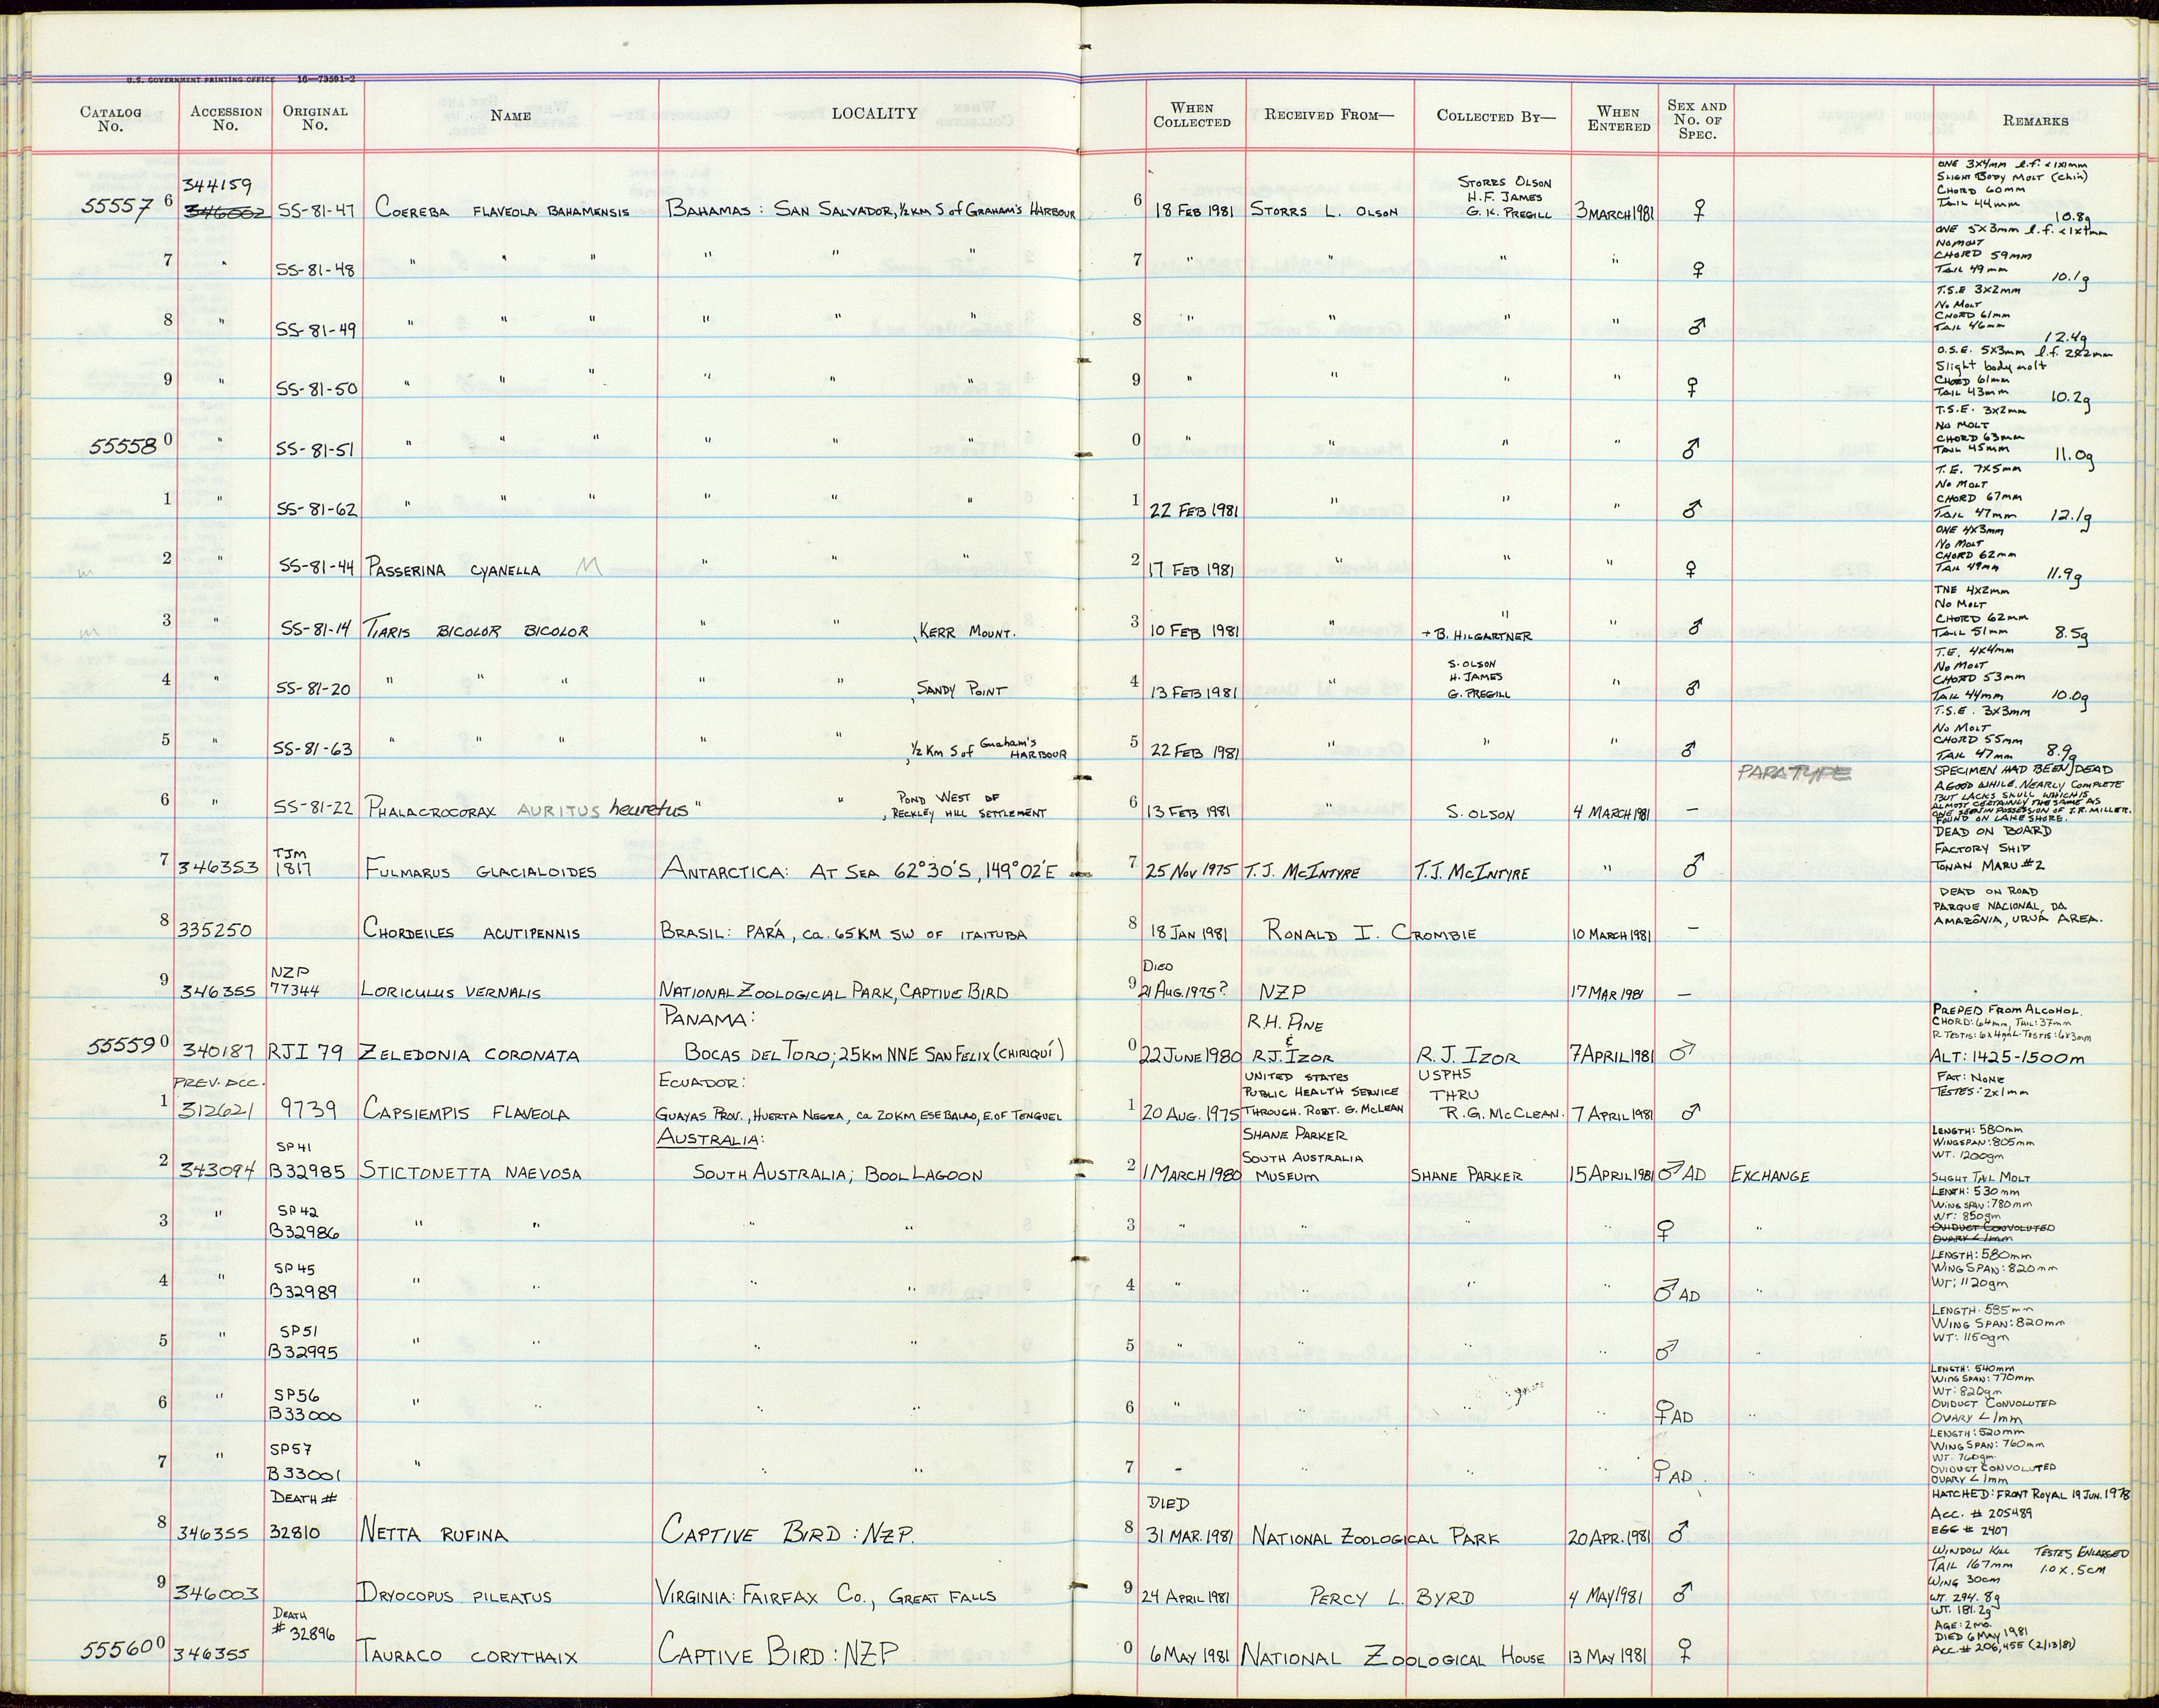 U.S. GOVERNMENT PRINTING OFFICE 16—73591-2
CATALOG No. ACCESSION No. ORIGINAL No. NAME LOCALITY WHEN COLLECTED RECEIVED FROM— COLLECTED BY— WHEN ENTERED SEX AND No. OF SPEC. REMARKS
55557 6 344159 346002 SS-81-47 COEREBA FLAVEOLA BAHAMENSIS BAHAMAS: SAN SALVADOR, ½ KM S of GRAHAM'S HARBOUR 6 18 FEB 1981 STORRS L. OLSON STORRS OLSON H.F. JAMES G.K. PREGILL 3 MARCH 1981 ♀ ONE 3x4mm l.f. <1x1mm SLIGHT BODY MOLT (chin) CHORD 60mm TAIL 44mm 10.8g
7 " SS-81-48 " " " " " " 7 " " " " ♀ ONE 5x3mm l.f. <1x1mm NO MOLT CHORD 59mm TAIL 49mm 10.1g
8 " SS-81-49 " " " " " " 8 " " " " ♂ T.S.E 3x2mm NO MOLT CHORD 61mm TAIL 46mm 12.4g
9 " SS-81-50 " " " " " " 9 " " " " ♀ O.S.E. 5x3mm l.f. 2x2mm Slight body molt CHORD 61mm TAIL 43mm 10.2g
55558 0 " SS-81-51 " " " " " " 0 " " " " ♂ T.S.E. 3x2mm NO MOLT CHORD 63mm TAIL 45mm 11.0g
1 " SS-81-62 " " " " " " 1 22 FEB 1981 " " " ♂ T.E. 7x5mm NO MOLT CHORD 67mm TAIL 47mm 12.1g
m 2 " SS-81-44 PASSERINA CYANELLA M " " " 2 17 FEB 1981 " " " ♀ ONE 4x3mm NO MOLT CHORD 62mm TAIL 49mm 11.9g
m 3 " SS-81-14 TIARIS BICOLOR BICOLOR " " , KERR MOUNT. 3 10 FEB 1981 " " + B. HILGARTNER " ♂ TNE 4x2mm NO MOLT CHORD 62mm TAIL 51mm 8.5g
4 " SS-81-20 " " " " " , SANDY POINT 4 13 FEB 1981 " S. OLSON H. JAMES G. PREGILL " ♂ T.E. 4x4mm NO MOLT CHORD 53mm TAIL 44mm 10.0g
5 " SS-81-63 " " " " " , ½ KM S of Graham's HARBOUR 5 22 FEB 1981 " " " ♂ T.S.E. 3x3mm NO MOLT CHORD 55mm TAIL 47mm 8.9g
6 " SS-81-22 PHALACROCORAX AURITUS heuretus " " , POND WEST OF RECKLEY HILL SETTLEMENT 6 13 FEB 1981 " S. OLSON 4 MARCH 1981 – PARATYPE SPECIMEN HAD BEEN DEAD A GOOD WHILE. NEARLY COMPLETE BUT LACKS SKULL WHICH IS ALMOST CERTAINLY THE SAME AS ONE SEEN IN POSSESSION OF J.R. MILLER. FOUND ON LAKE SHORE.
7 346353 TJM 1817 FULMARUS GLACIALOIDES ANTARCTICA: AT SEA 62°30'S, 149°02'E 7 25 NOV 1975 T.J. MCINTYRE T.J. MCINTYRE " ♂ DEAD ON BOARD FACTORY SHIP TONAN MARU #2
8 335250 CHORDEILES ACUTIPENNIS BRASIL: PARÁ, ca. 65KM SW OF ITAITUBA 8 18 JAN 1981 RONALD I. CROMBIE 10 MARCH 1981 – DEAD ON ROAD PARQUE NACIONAL, DA AMAZÔNIA, URUÁ AREA.
9 346355 NZP 77344 LORICULUS VERNALIS NATIONAL ZOOLOGICIAL PARK, CAPTIVE BIRD 9 DIED 21 AUG. 1975? NZP 17 MAR 1981 –
55559 0 340187 RJI 79 ZELEDONIA CORONATA PANAMA: BOCAS DEL TORO; 25KM NNE SAN FELIX (CHIRIQUÍ) 0 22 JUNE 1980 R.H. PINE & R.J. IZOR R.J. IZOR 7 APRIL 1981 ♂ PREPED FROM ALCOHOL. CHORD: 64mm, TAIL: 37mm R TESTIS: 6x4mm L TESTIS: 6x3mm ALT: 1425-1500m
1 PREV. ACC. 312621 9739 CAPSIEMPIS FLAVEOLA ECUADOR: GUAYAS PROV., HUERTA NEGRA, ca 20KM ESE BALAO, E. OF TENGUEL 1 20 AUG. 1975 UNITED STATES PUBLIC HEALTH SERVICE THROUGH. ROBT. G. MCLEAN USPHS THRU R.G. MCCLEAN. 7 APRIL 1981 ♂ FAT: NONE TESTES: 2x1mm
2 343094 SP41 B32985 STICTONETTA NAEVOSA AUSTRALIA: SOUTH AUSTRALIA; BOOL LAGOON 2 1 MARCH 1980 SHANE PARKER SOUTH AUSTRALIA MUSEUM SHANE PARKER 15 APRIL 1981 ♂ AD EXCHANGE LENGTH: 580mm WINGSPAN: 805mm WT. 1200gm SLIGHT TAIL MOLT
3 " SP42 B32986 " " " " 3 " " " " ♀ " LENGTH: 530mm WING SPAN: 780mm WT: 850gm OVIDUCT CONVOLUTED OVARY <1mm
4 " SP45 B32989 " " " " 4 " " " " ♂ AD " LENGTH: 580mm WING SPAN: 820mm WT: 1120gm
5 " SP51 B32995 " " " " 5 " " " " ♂ " LENGTH: 585mm WING SPAN: 820mm WT: 1150gm
6 " SP56 B33000 " " " " 6 " " " " ♀ AD " LENGTH: 540mm WING SPAN: 770mm WT: 820gm OVIDUCT CONVOLUTED OVARY <1mm
7 " SP57 B33001 " " " 7 " " " " ♀ AD. " LENGTH: 520mm WING SPAN: 760mm WT. 760gm. OVIDUCT CONVOLUTED OVARY <1mm
8 346355 DEATH # 32810 NETTA RUFINA CAPTIVE BIRD: NZP. 8 DIED 31 MAR. 1981 NATIONAL ZOOLOGICAL PARK 20 APR. 1981 ♂ HATCHED: FRONT ROYAL 19 JUN. 1978 ACC. # 205489 EGG # 2407
9 346003 DRYOCOPUS PILEATUS VIRGINIA: FAIRFAX CO., GREAT FALLS 9 24 APRIL 1981 PERCY L. BYRD 4 MAY 1981 ♂ WINDOW KILL TESTES ENLARGED TAIL 167mm 1.0 x .5cm WING 30cm WT. 294.8g
55560 0 346355 DEATH # 32896 TAURACO CORYTHAIX CAPTIVE BIRD: NZP 0 6 MAY 1981 NATIONAL ZOOLOGICAL HOUSE 13 MAY 1981 ♀ WT. 181.2g AGE: 2 MO. DIED 6 MAY 1981 ACC. # 206,455 (2/13/81)